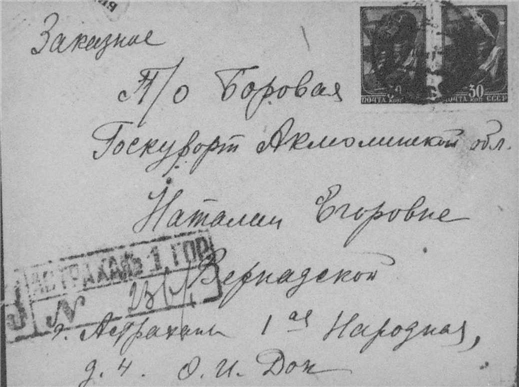 Заказное
30 30
ПОЧТА СССР ПОЧТА СССР
П/о Боровая
Госкурорт Акмолинской обл.
Наталии Егоровне
Вернадской
АСТРАХАНЬ 1 ГОР
N
г. Астрахань 1ая Народная,
д. 4. О. И. Док